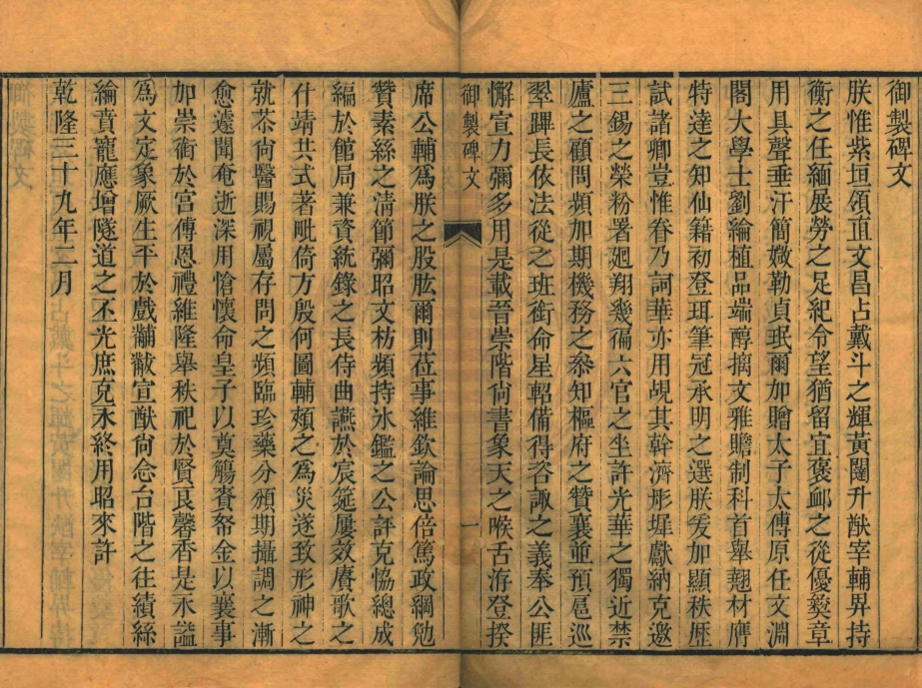 御製碑文
朕惟紫垣領直文昌占戴斗之輝黃閣升猷宰輔昇持
衡之任緬展勞之足紀令望猶留宜褒卹之從優彝章
用具聲垂汗簡媺勒貞珉爾加贈太子太傅原任文淵
閣大學士劉綸植品端醇摛文雅贍制科首舉翹材膺
特達之知仙籍初登珥筆冠承明之選朕爰加顯秩歷
試諸卿豈惟眷乃詞華亦用覘其幹濟形墀獻納克邀
三錫之榮粉署廻翔幾徧六官之坐許光華之獨近禁
廬之顧問頻加期機務之叅知樞府之贊襄並預扈巡
翠蹕長依法從之班銜命星軺備得咨諏之義奉公匪
懈宣力彌多用是載晉崇階尙書象天之喉舌洊登揆
御製碑文
一
席公輔爲朕之股肱爾則莅事維欽論思倍篤政綱勉
贊素絲之淸節彌昭文枋頻持氷鑑之公評克恊總成
編於館局兼資統錄之長侍曲讌於宸筵屢效賡歌之
什靖共式著毗倚方殷何圖輔頰之爲災遂致形神之
就苶尙醫賜視屬存問之頻臨珍藥分頒期攝調之漸
愈遽聞奄逝深用愴懷命皇子以奠觴賚帑金以襄事
加崇銜於宮傅恩禮維隆舉秩祀於賢良馨香是永諡
爲文定象厥生平於戲黼黻宣猷尙念台階之往績絲
綸賁寵應增隧道之丕光庶克永終用昭來許
乾隆三十九年二月